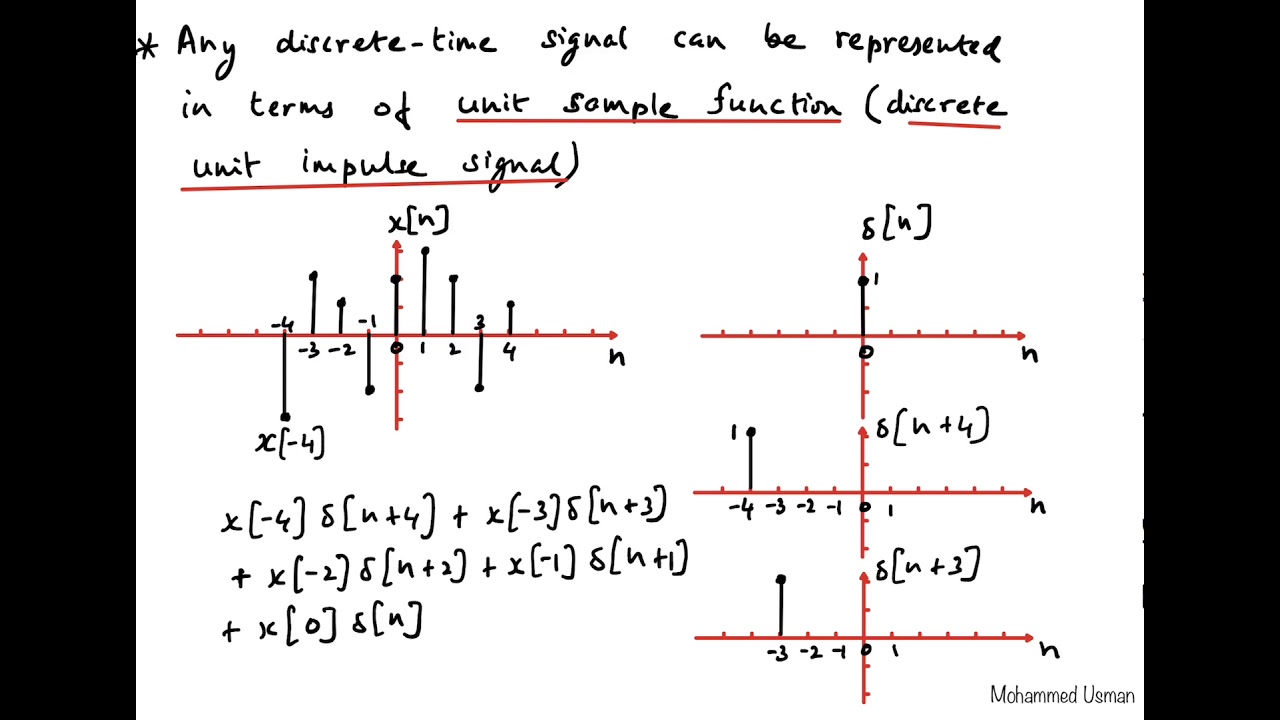 * Any discrete-time signal can be represented
in terms of unit sample function (discrete
unit impulse signal)
x[n]
-4 -1 3
-3 -2 0 1 2 4 n
x[-4]
δ[n]
1
0 n
δ[n+4]
1
-4 -3 -2 -1 0 1 n
δ[n+3]
-3 -2 -1 0 1 n
x[-4] δ[n+4] + x[-3] δ[n+3]
+ x[-2] δ[n+2] + x[-1] δ[n+1]
+ x[0] δ[n]
Mohammed Usman